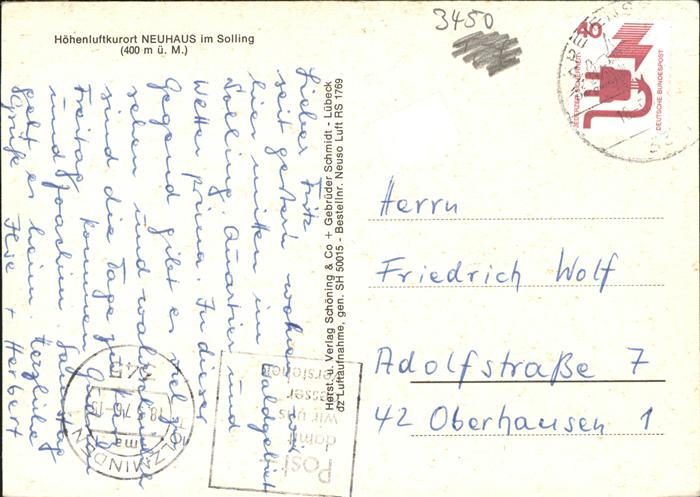 Höhenluftkurort NEUHAUS im Solling
(400 m ü. M.)
3450
40
JEDERZEIT SICHERHEIT
DEUTSCHE BUNDESPOST
Lieber Fritz
seit gestern wohnen wir
hier mitten im Waldgebiet
Solling. Quartier und
Wetter prima. In dieser
Gegend gibt es viel zu
sehen und wahrscheinlich
sind die Tage zu kurz.
Freitag kommen
und Joachim.
geht es heim. Herzliche
Grüße Ilse + Herbert
Herst. u. Verlag Schöning & Co + Gebrüder Schmidt - Lübeck
dz Luftaufnahme, gen. SH 50015 - Bestellnr. Neuso Luft RS 1769
Herrn
Friedrich Wolf
Adolfstraße 7
42 Oberhausen 1
345
18.5.76-15
ma
HOLZMINDEN
Post
damit
wir uns
besser
verstehen